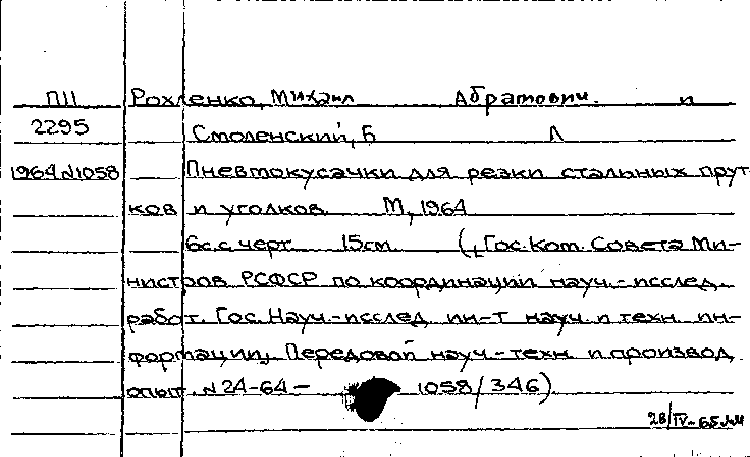 П11 Рохленко, Михаил Абрамович. и
2295 Смоленский, Б Л
1964 №1058 Пневмокусачки для резки стальных прут-
ков и уголков. М, 1964
6с. с черт 15см. (Гос. Ком. Совета Ми-
нистров РСФСР по координации науч.-исслед.
работ. Гос. Науч-исслед. ин-т науч. и техн. ин-
формации. Передовой науч.-техн. и производ.
опыт. №24-64- 1058/346)
28/IV-65